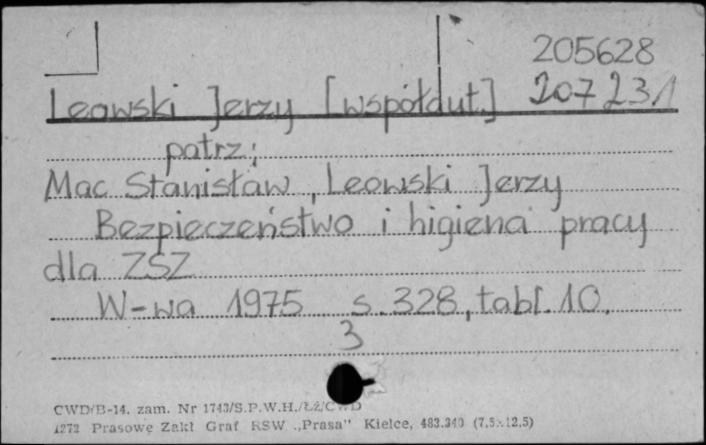 205628
Leowski Jerzy [współaut.] 207231
patrz:
Mac Stanisław, Leowski Jerzy
Bezpieczeństwo i higiena pracy
dla ZSZ
W-wa 1975 s. 328, tabl. 10.
3
CWD/B-14. zam. Nr 1743/S.P.W.H./ŁŻ/CWD
1272 Prasowe Zakł Graf RSW „Prasa" Kielce, 483.340 (7,5×12,5)